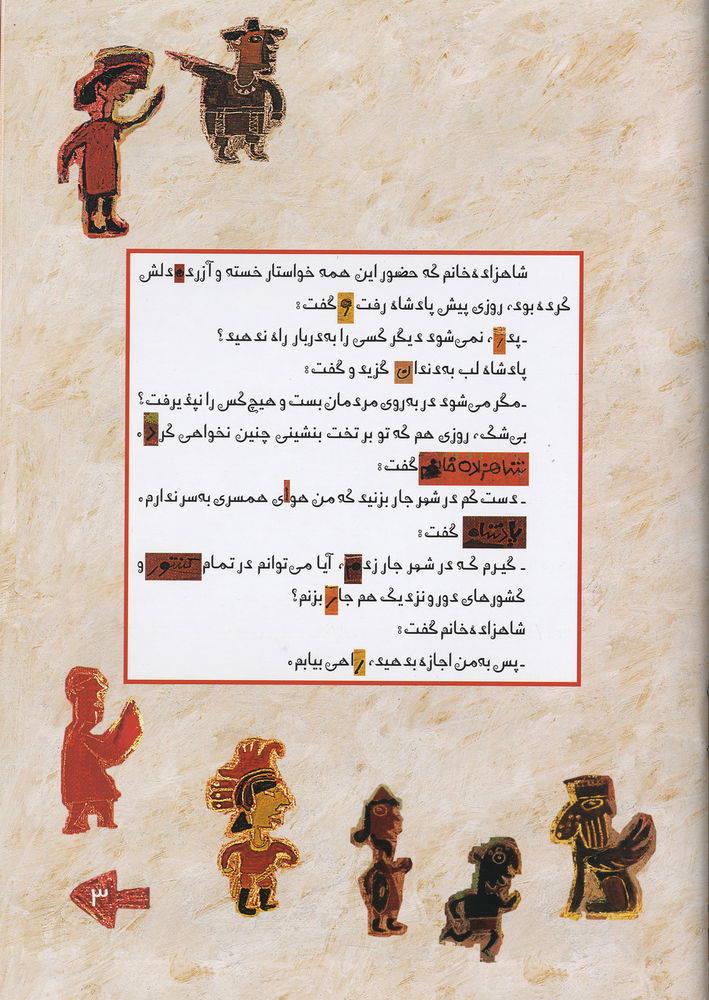 شاهزاده‌خانم که حضور این همه خواستار خسته و آزرده‌دلش
کرده بود، روزی پیش پادشاه رفت و گفت:
ـ پدر، نمی‌شود دیگر کسی را به‌دربار راه ندهید؟
پادشاه لب به‌دندان گزید و گفت:
ـ مگر می‌شود در به‌روی مردمان بست و هیچ‌کس را نپذیرفت؟
بی‌شک، روزی هم که تو بر تخت بنشینی چنین نخواهی کرد.
شاهزاده خانم گفت:
ـ دست کم در شهر جار بزنید که من هوای همسری به‌سر ندارم.
پادشاه گفت:
ـ گیرم که در شهر جار زدم، آیا می‌توانم در تمام کشور و
کشورهای دور و نزدیک هم جار بزنم؟
شاهزاده‌خانم گفت:
ـ پس به‌من اجازه بدهید، راهی بیابم.
۳